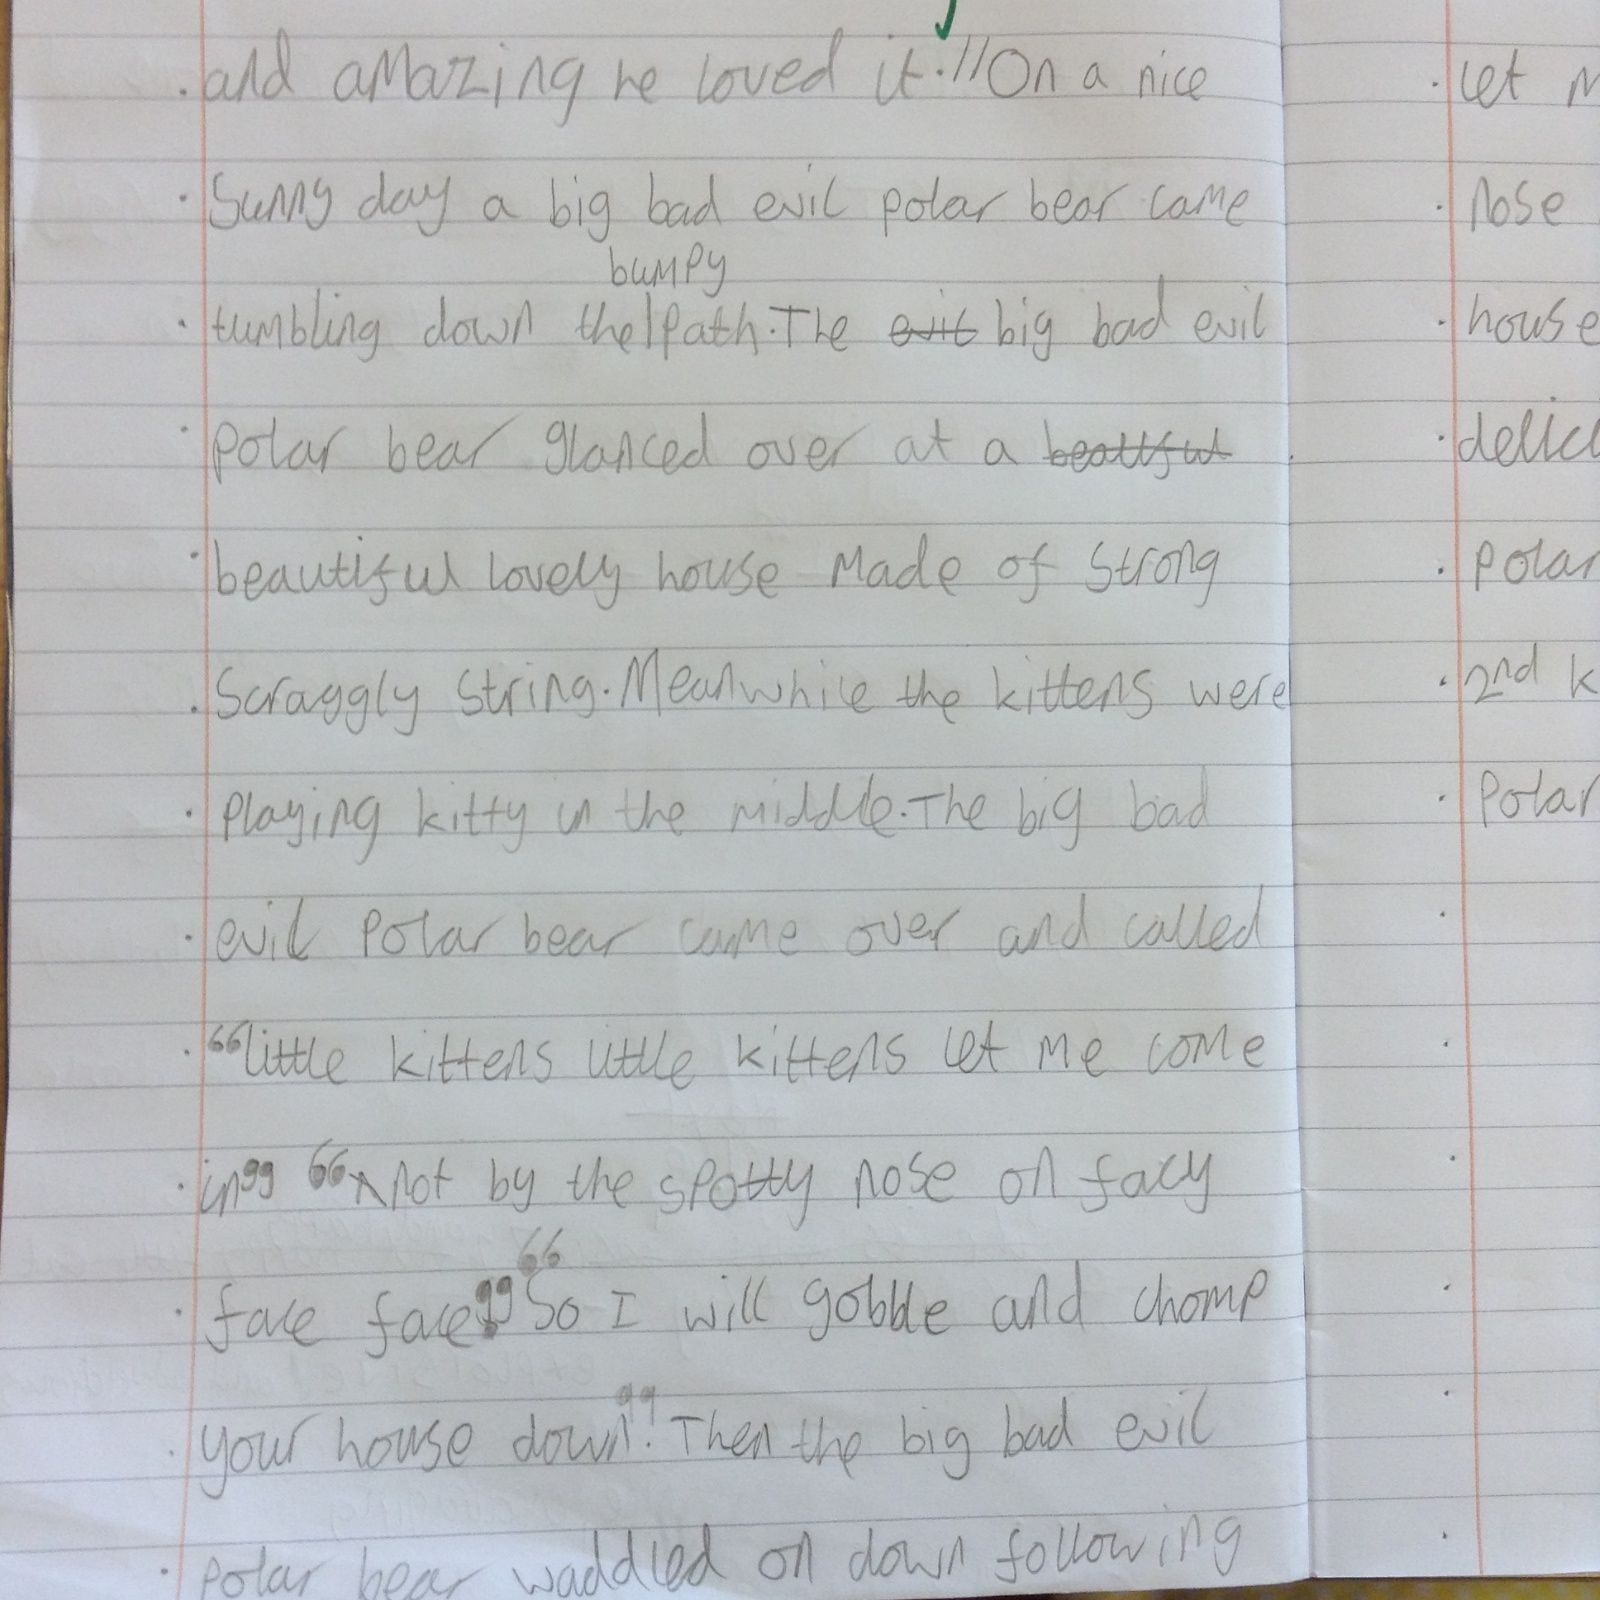 and amazing he loved it.//On a nice
Sunny day a big bad evil polar bear came
bumpy
tumbling down the|path.The evil big bad evil
polar bear glanced over at a
beautiful lovely house made of strong
Scraggly string.Meanwhile the kittens were
playing kitty in the middle.The big bad
evil polar bear came over and called
“little kittens little kittens let me come
in” “^not by the spotty nose on facy
face face!” “So I will gobble and chomp
your house down!” Then the big bad evil
polar bear waddled on down following
let
nose
house
polar
2nd k
polar